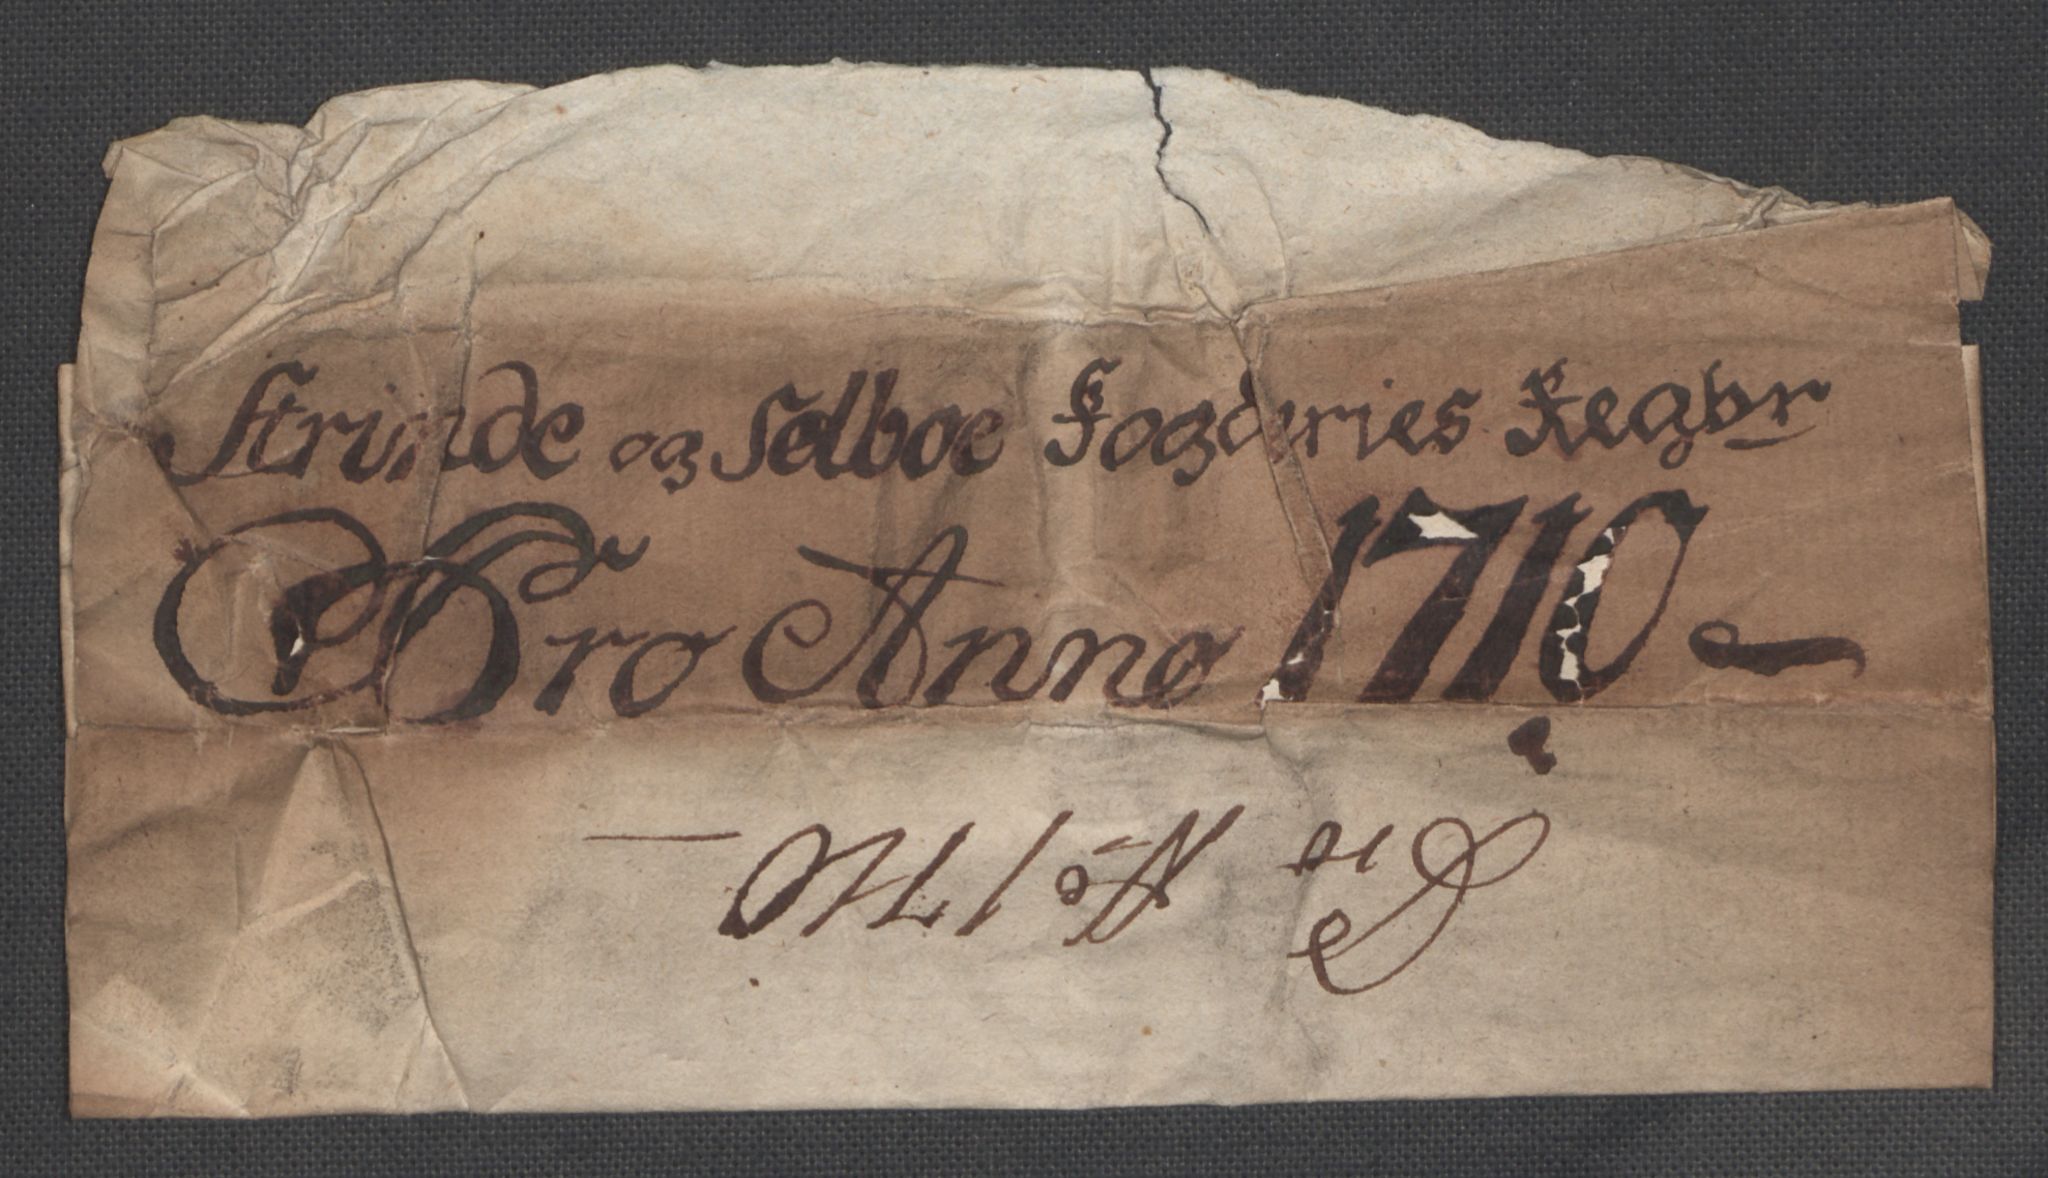 Strinde og Selboe Fogderies Regbr
Pro Anno 1710
Pro Ao 1710